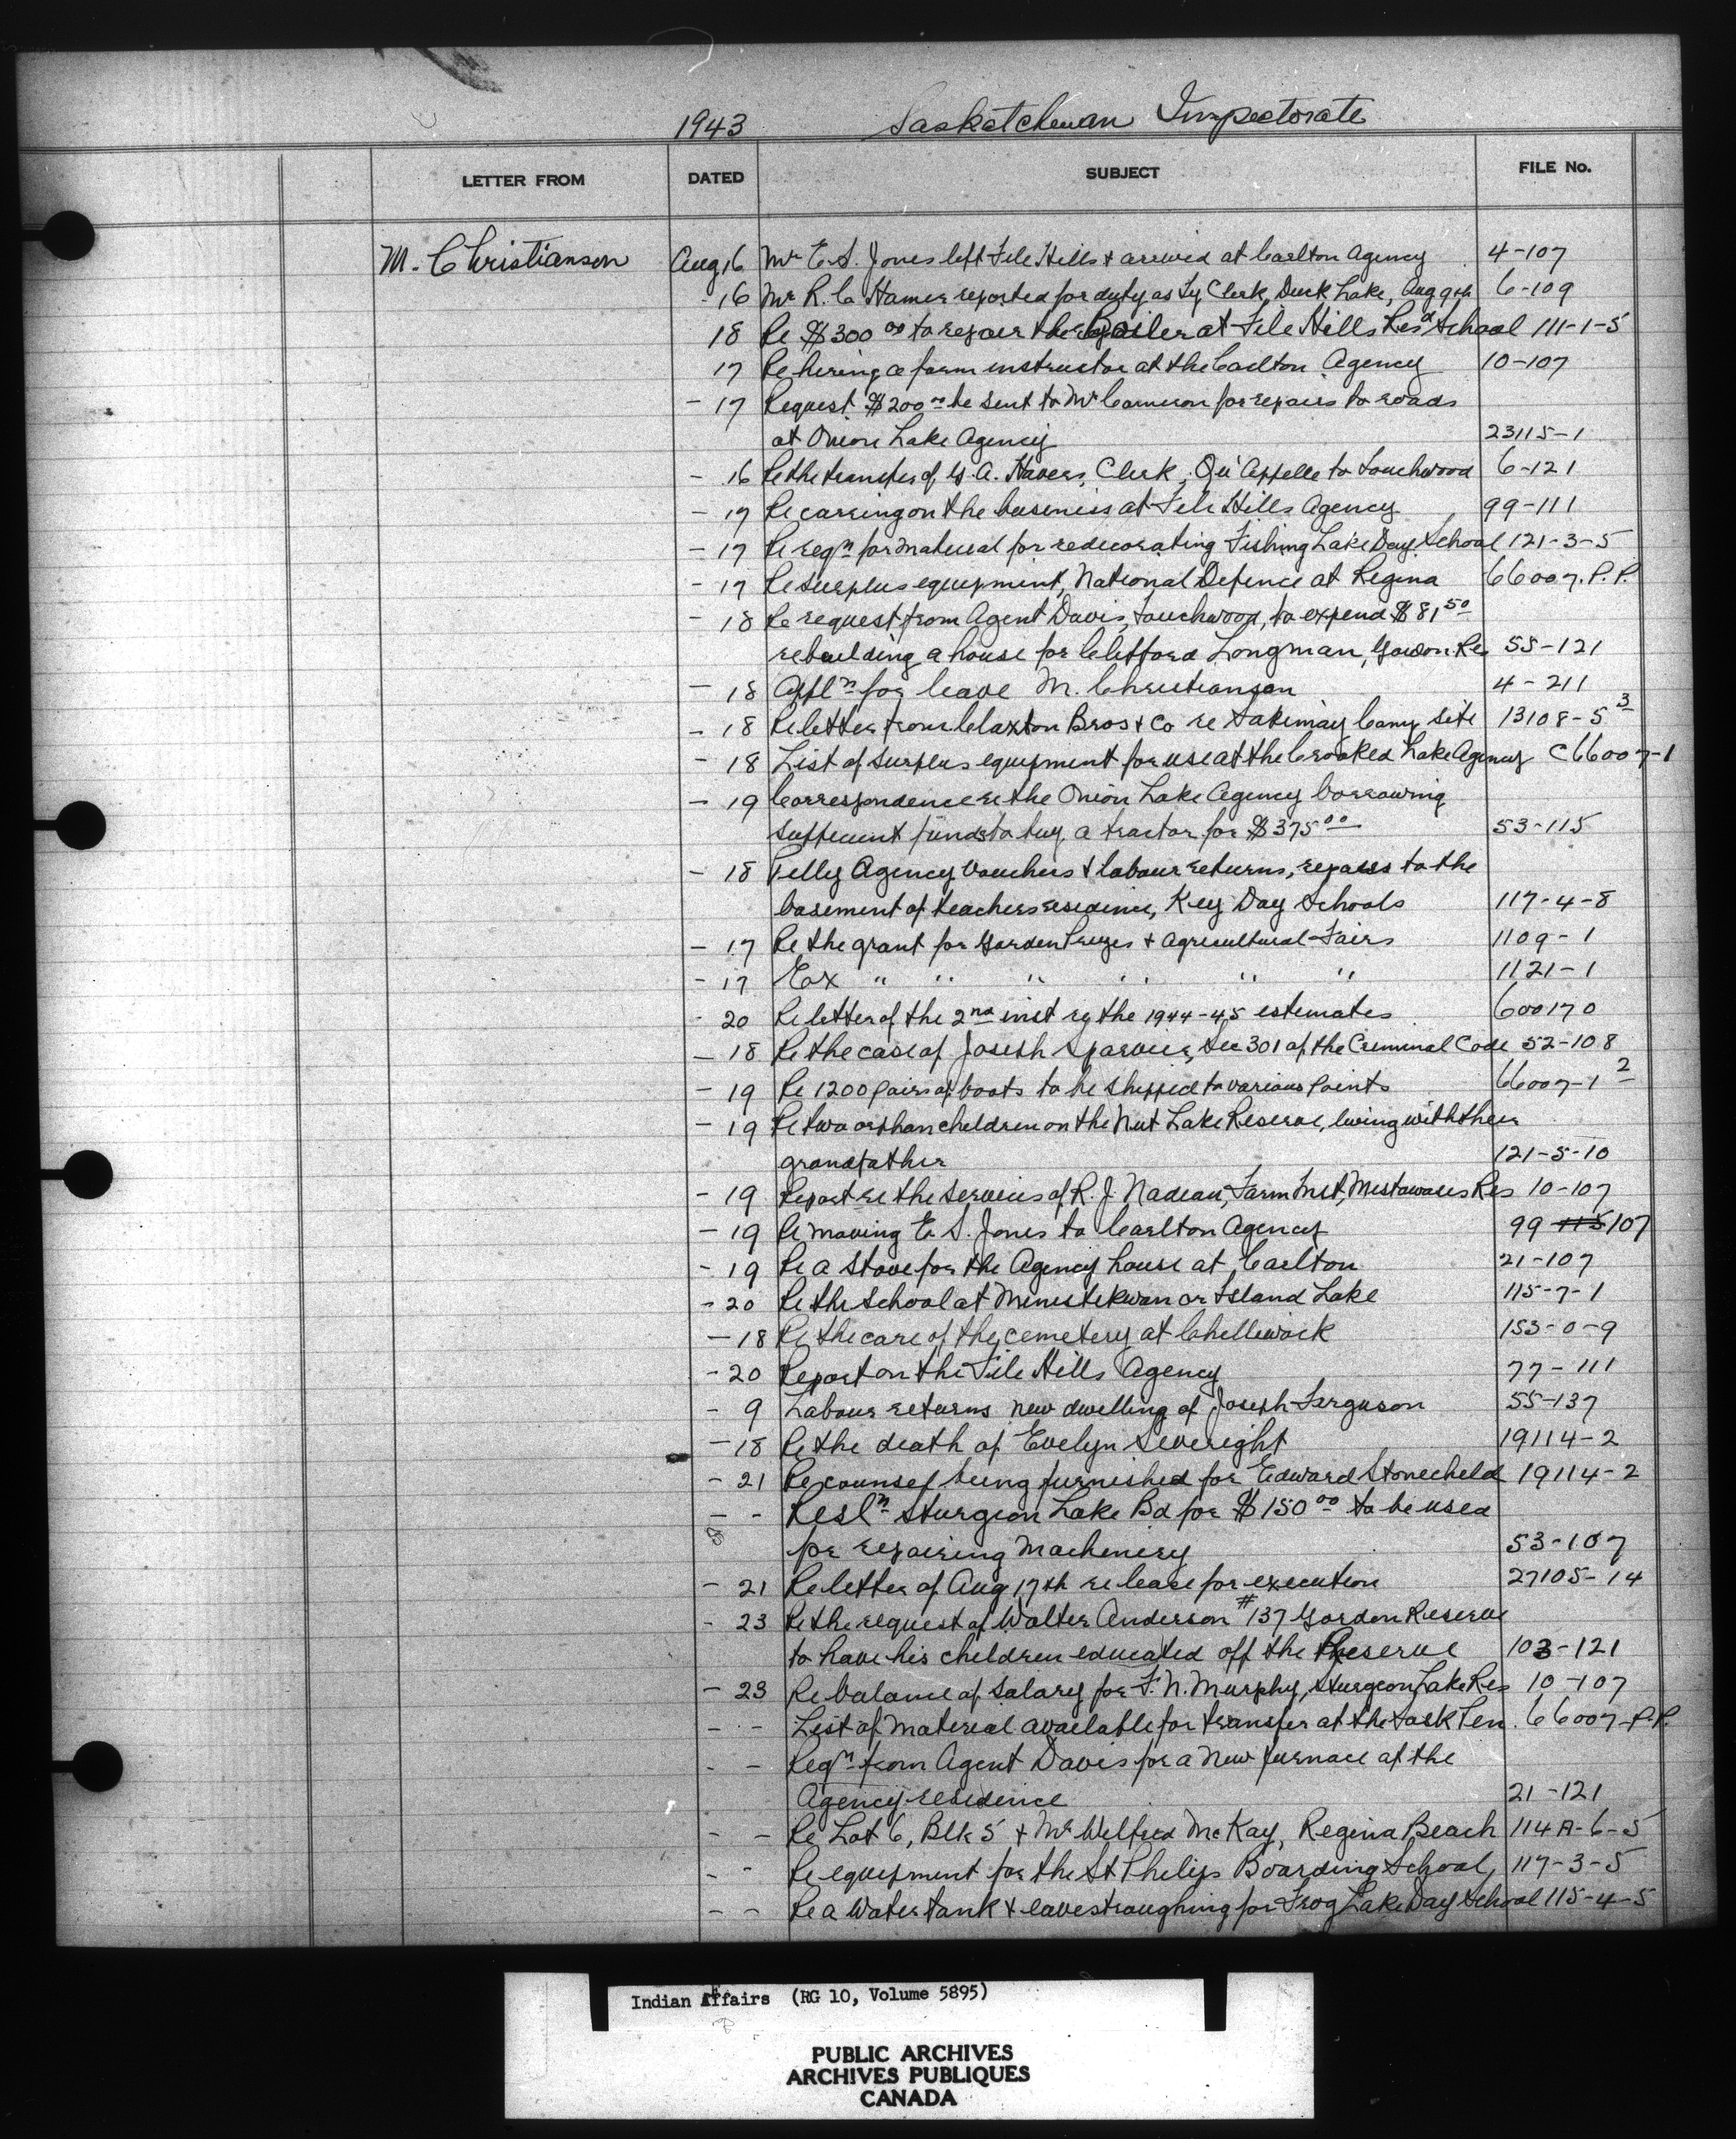 1943 Saskatchewan Inspectorate
LETTER FROM DATED SUBJECT FILE No.
M. Christianson Aug 16 Mr E.S. Jones left File Hills & arrived at Carlton Agency 4-107
- 16 Mr R. C. Hamer reported for duty as Ty Clerk, Duck Lake, Aug 9th 6-109
18 Re $300 00 to repair the Boiler at File Hills Resd School 111-1-5
17 Re hiring a farm instructor at the Carlton Agency 10-107
- 17 Request $200 00 be sent to Mr Cameron for repairs to roads
at Onion Lake Agency 23115-1
- 16 Re the transfer of G. A. Havers, Clerk, Qu'Appelle to Touchwood 6-121
- 17 Re carring on the business at File Hills Agency 99-111
- 17 Re reqn for material for redecorating Fishing Lake Day School 121-3-5
- 17 Re surplus equipment, National Defence at Regina 66007. P. P.
- 18 Re request from Agent Davis, Touchwood, to expend $81 50
rebuilding a house for Clifford Longman, Gordon Res 55-121
- 18 Appln for leave M. Christianson 4-211
- 18 Re letter from Claxton Bros & Co re Sakimay Camp Site 13108-5 3
- 18 List of surplus equipment for use at the Crooked Lake Agency C66007-1
- 19 Correspondence re the Onion Lake Agency borrowing
sufficient funds to buy a tractor for $375 00 53-115
- 18 Pelly Agency Vouchers & labour returns, repairs to the
basement of teachers residence, Key Day Schools 117-4-8
- 17 Re the grant for Garden Prizes & Agricultural Fairs 1109-1
- 17 " " " " " " 1121-1
- 20 Re letter of the 2nd inst re the 1944-45 estimates 600170
- 18 Re the case of Joseph Sparvier, Sec 301 of the Criminal Code 52-108
- 19 Re 1200 pairs of boots to be shipped to various points 66007-1 2
- 19 Re two orphan children on the Nut Lake Reserve, living with their
grandfather 121-5-10
- 19 Report re the services of R. J. Nadeau, Farm Inst, Mistawasis Res 10-107
- 19 Re moving E. S. Jones to Carlton Agency 99 115 107
- 19 Re a Stove for the Agency house at Carlton 21-107
- 20 Re the School at Ministikwan or Island Lake 115-7-1
- 18 Re the care of the cemetery at Chilliwack 153-0-9
- 20 Report on the File Hills Agency 77-111
- 9 Labour returns new dwelling of Joseph Ferguson 55-137
- 18 Re the death of Evelyn Severight 19114-2
- 21 Re counsel being furnished for Edward Stonechild 19114-2
- - Resln Sturgeon Lake Bd for $150 00 to be used
for repairing Machinery 53-107
- 21 Re letter of Aug 17th re lease for execution 27105-14
- 23 Re the request of Walter Anderson #137 Gordon Reserve
to have his children educated off the Reserve 103-121
- 23 Re balance of salary for F. N. Murphy, Sturgeon Lake Res 10-107
- - List of Material available for transfer at the 66007-P.P.
- - Reqn from Agent Davis for a new furnace at the
Agency residence 21-121
- - Re Lot 6, Blk 5 & Mr Wilfred McKay, Regina Beach 114A-6-5
- - Re equipment for the St Philips Boarding School, 117-3-5
- - Re a Water tank & eavestroughing for Frog Lake Day School 115-4-5
Indian Affairs (RG 10, Volume 5895)
PUBLIC ARCHIVES
ARCHIVES PUBLIQUES
CANADA